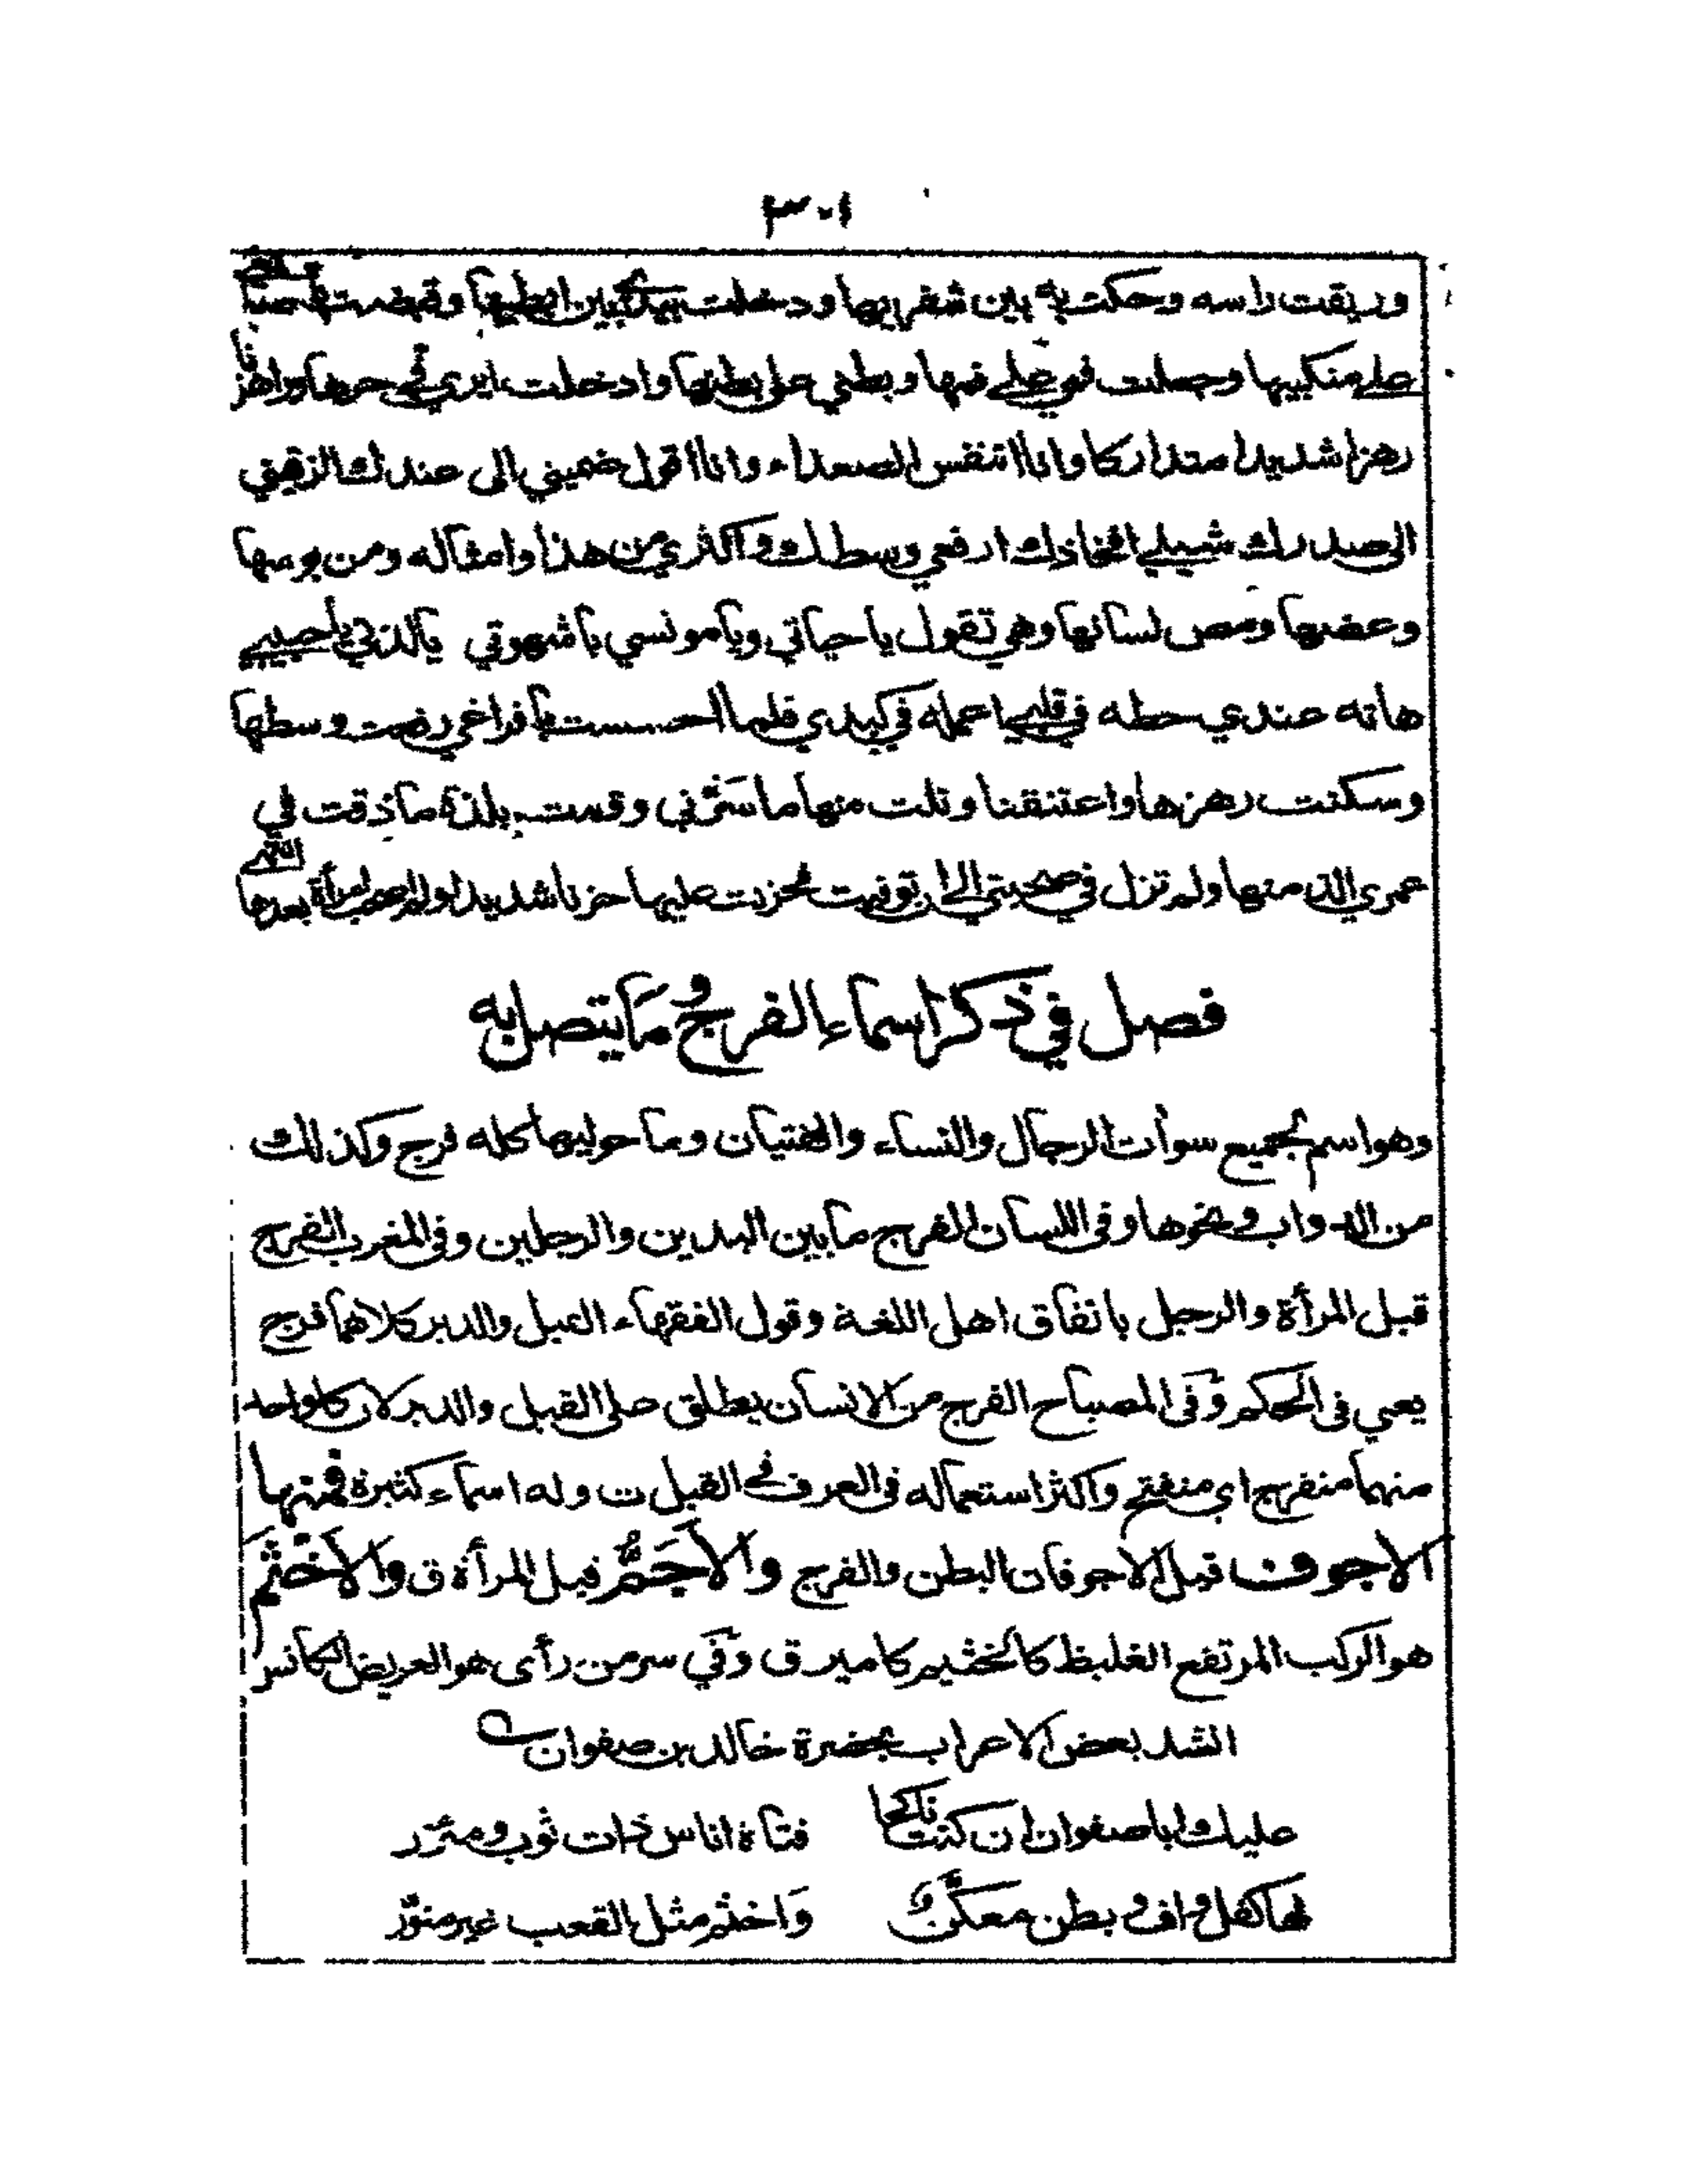 ١٠٣
وريقت راسه وحكت به بين شفريها ودخلت بيدي بين ابطيها وقبضت
على منكبيها وجعلت فمي على فمها وبطني على بطنها وادخلت ايري في حرها
رهزا شديدا متداركا وانا اتنفس الصعداء وانا اقول ضميني الى عندك الزقيني
الى صدرك شيلي افخاذك ارفعي وسطك واكثري من هذا وامثاله ومن بوسها
وعضها ومص لسانها وهي تقول يا حياتي ويا مونسي يا شهوتي يالذتي يا حبيبي
هاته عندي حطه في قلبي اعمله في كبدي فلما احسست بافراغي رفعت وسطها
وسكنت رهزها واعتنقنا ونلت منها ما سرّني وقمت بلذة ما ذقت في
عمري الذ منها ولم تزل في صحبتي الى ان توفيت فحزنت عليها حزنا شديدا ولم اصحب امرأة بعدها انتهى
فصل في ذكر اسماء الفرج وما يتصل به
وهو اسم لجميع سوآت الرجال والنساء والفتيان وما حوليها كله فرج وكذلك
من الدواب ونحوها وفى اللسان الفرج ما بين اليدين والرجلين وفى المغرب الفرج
قبل المرأة والرجل باتفاق اهل اللغة وقول الفقهاء القبل والدبر كلاهما فرج
يعني فى الحكم وفى المصباح الفرج من الانسان يطلق على القبل والدبر لان كل واحد
منهما منفرج اي منفتح واكثر استعماله فى العرف في القبل ت وله اسماء كثيرة فمنها
الاجوف قيل الاجوفان البطن والفرج والأجَمُّ قبل المرأة ق والأخْثَم
هو الركب المرتفع الغليظ كالخثيم كامير ق وفي سر من رأى هو العريض
انشد بعض الاعراب بحضرة خالد بن صفوان
عليك ابا صفوان ان كنت ناكحا فتاة اناس ذات ثوب ومئزر
لها كفل واف وبطن معكن واخثم مثل القعب غير منوّر